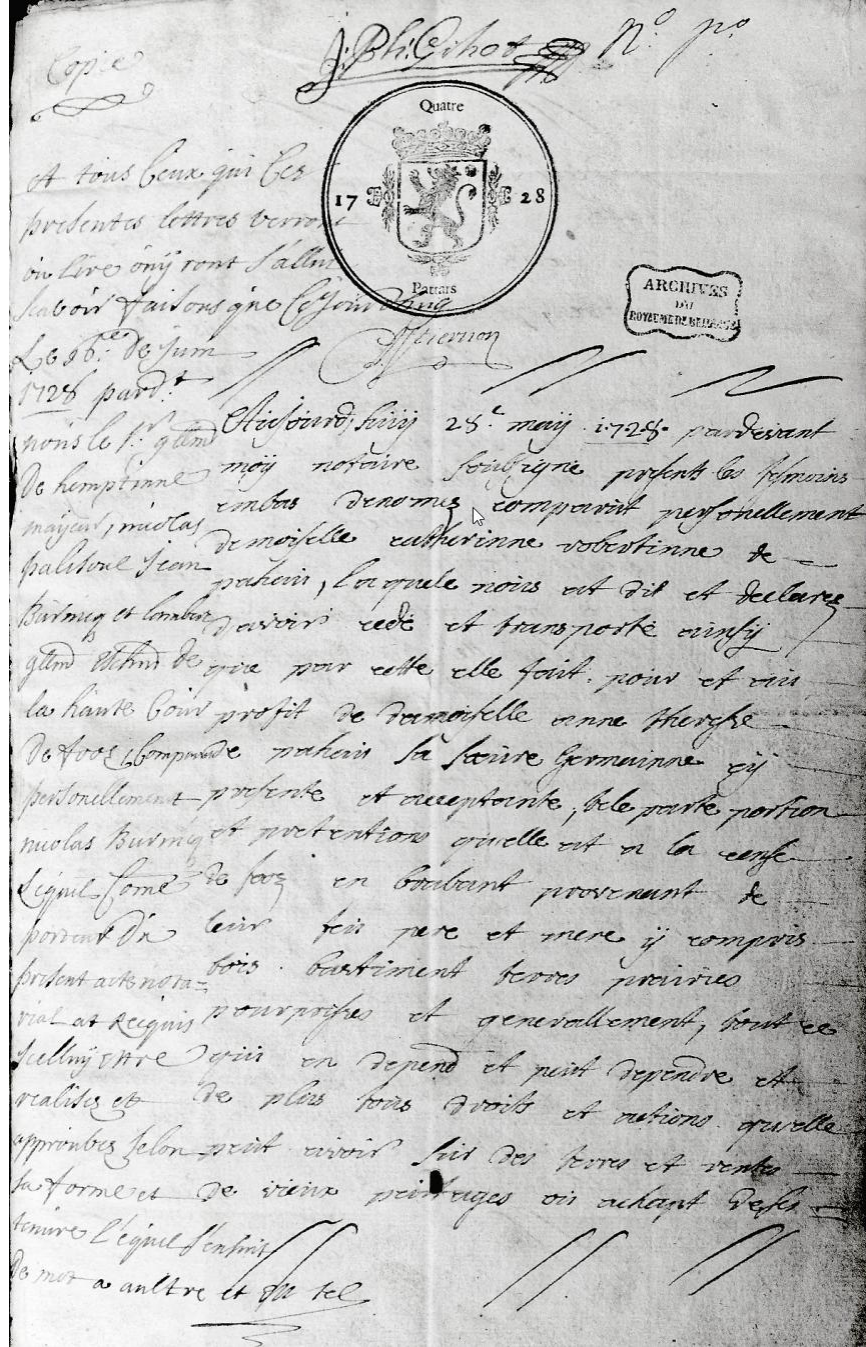 Copie
J: Ph: Gihot
N.o p.o
Quatre
17 28
Pattars
ARCHIVES
DU
ROYAUME DE BELGIQUE
A tous Ceux qui Ces
presentes lettres verront
ou lire oÿront Salut
Scavoir faisons que Cejourdhuy
Le 16.e de Juin
1728 pard.t
nous le S.r guilm
De hemptinne
mayeur, nicolas
paliseul Jean
Burnicq et Lambert
guilm Echins de
la haute Cour
De fooz, Comparu
personellement
nicolas Burnicq
Lequel Come
porteur Du
present acte nota=
rial at Requis
Icelluÿ ettre
realisez et
approubez selon
sa forme et
tenure lequel sensuit
De mot a aultre et est tel
Aujourdhuy 28.e maÿ 1728. pardevant
moÿ notaire soubsigné presents les tesmoins
embas denomez comparut personellement
demoiselle catherinne robertinne de
pahau, laquele nous at dit et declaré
davoir cedé et transporté ainsÿ
que par cette elle fait. pour et au
profit de damoiselle anne therese
de pahau sa sœure Germainne cÿ
presente et acceptante, tele parte portion
et pretentions quelle at a la cense
de fooz en brabant provenant de
leur feu pere et mere ÿ compris
bois. bastiment terres prairies
pourprises et generallement, tout ce
qui en depend et peut dependre et
de plus tous droits et actions quelle
peut avoir sur des terres et rentes
de vieux peintages ou achapt de ses